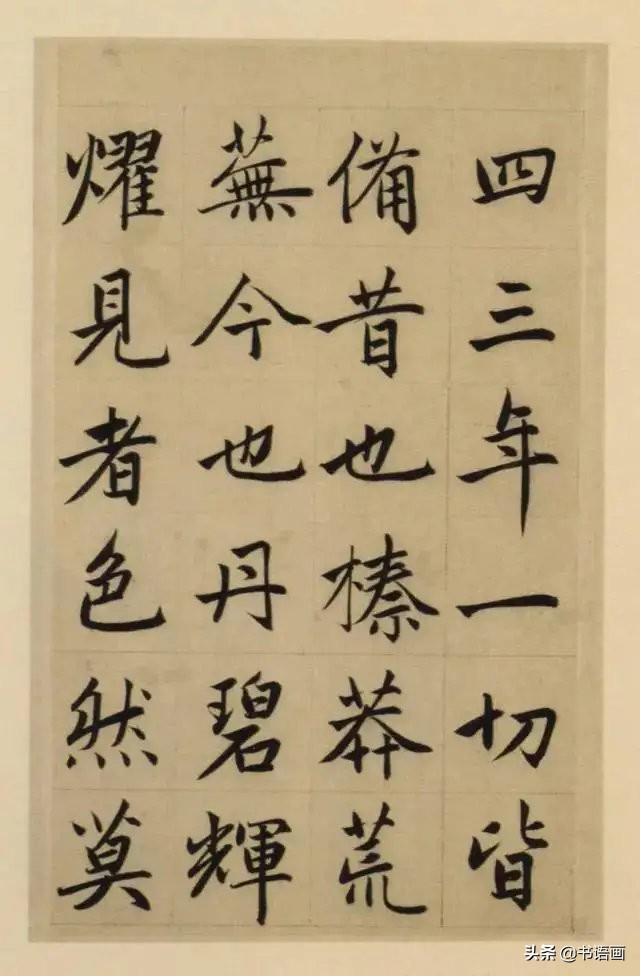 四三年一切皆
備昔也榛莽荒
蕪今也丹碧輝
燿見者色然莫
头条 @书语画